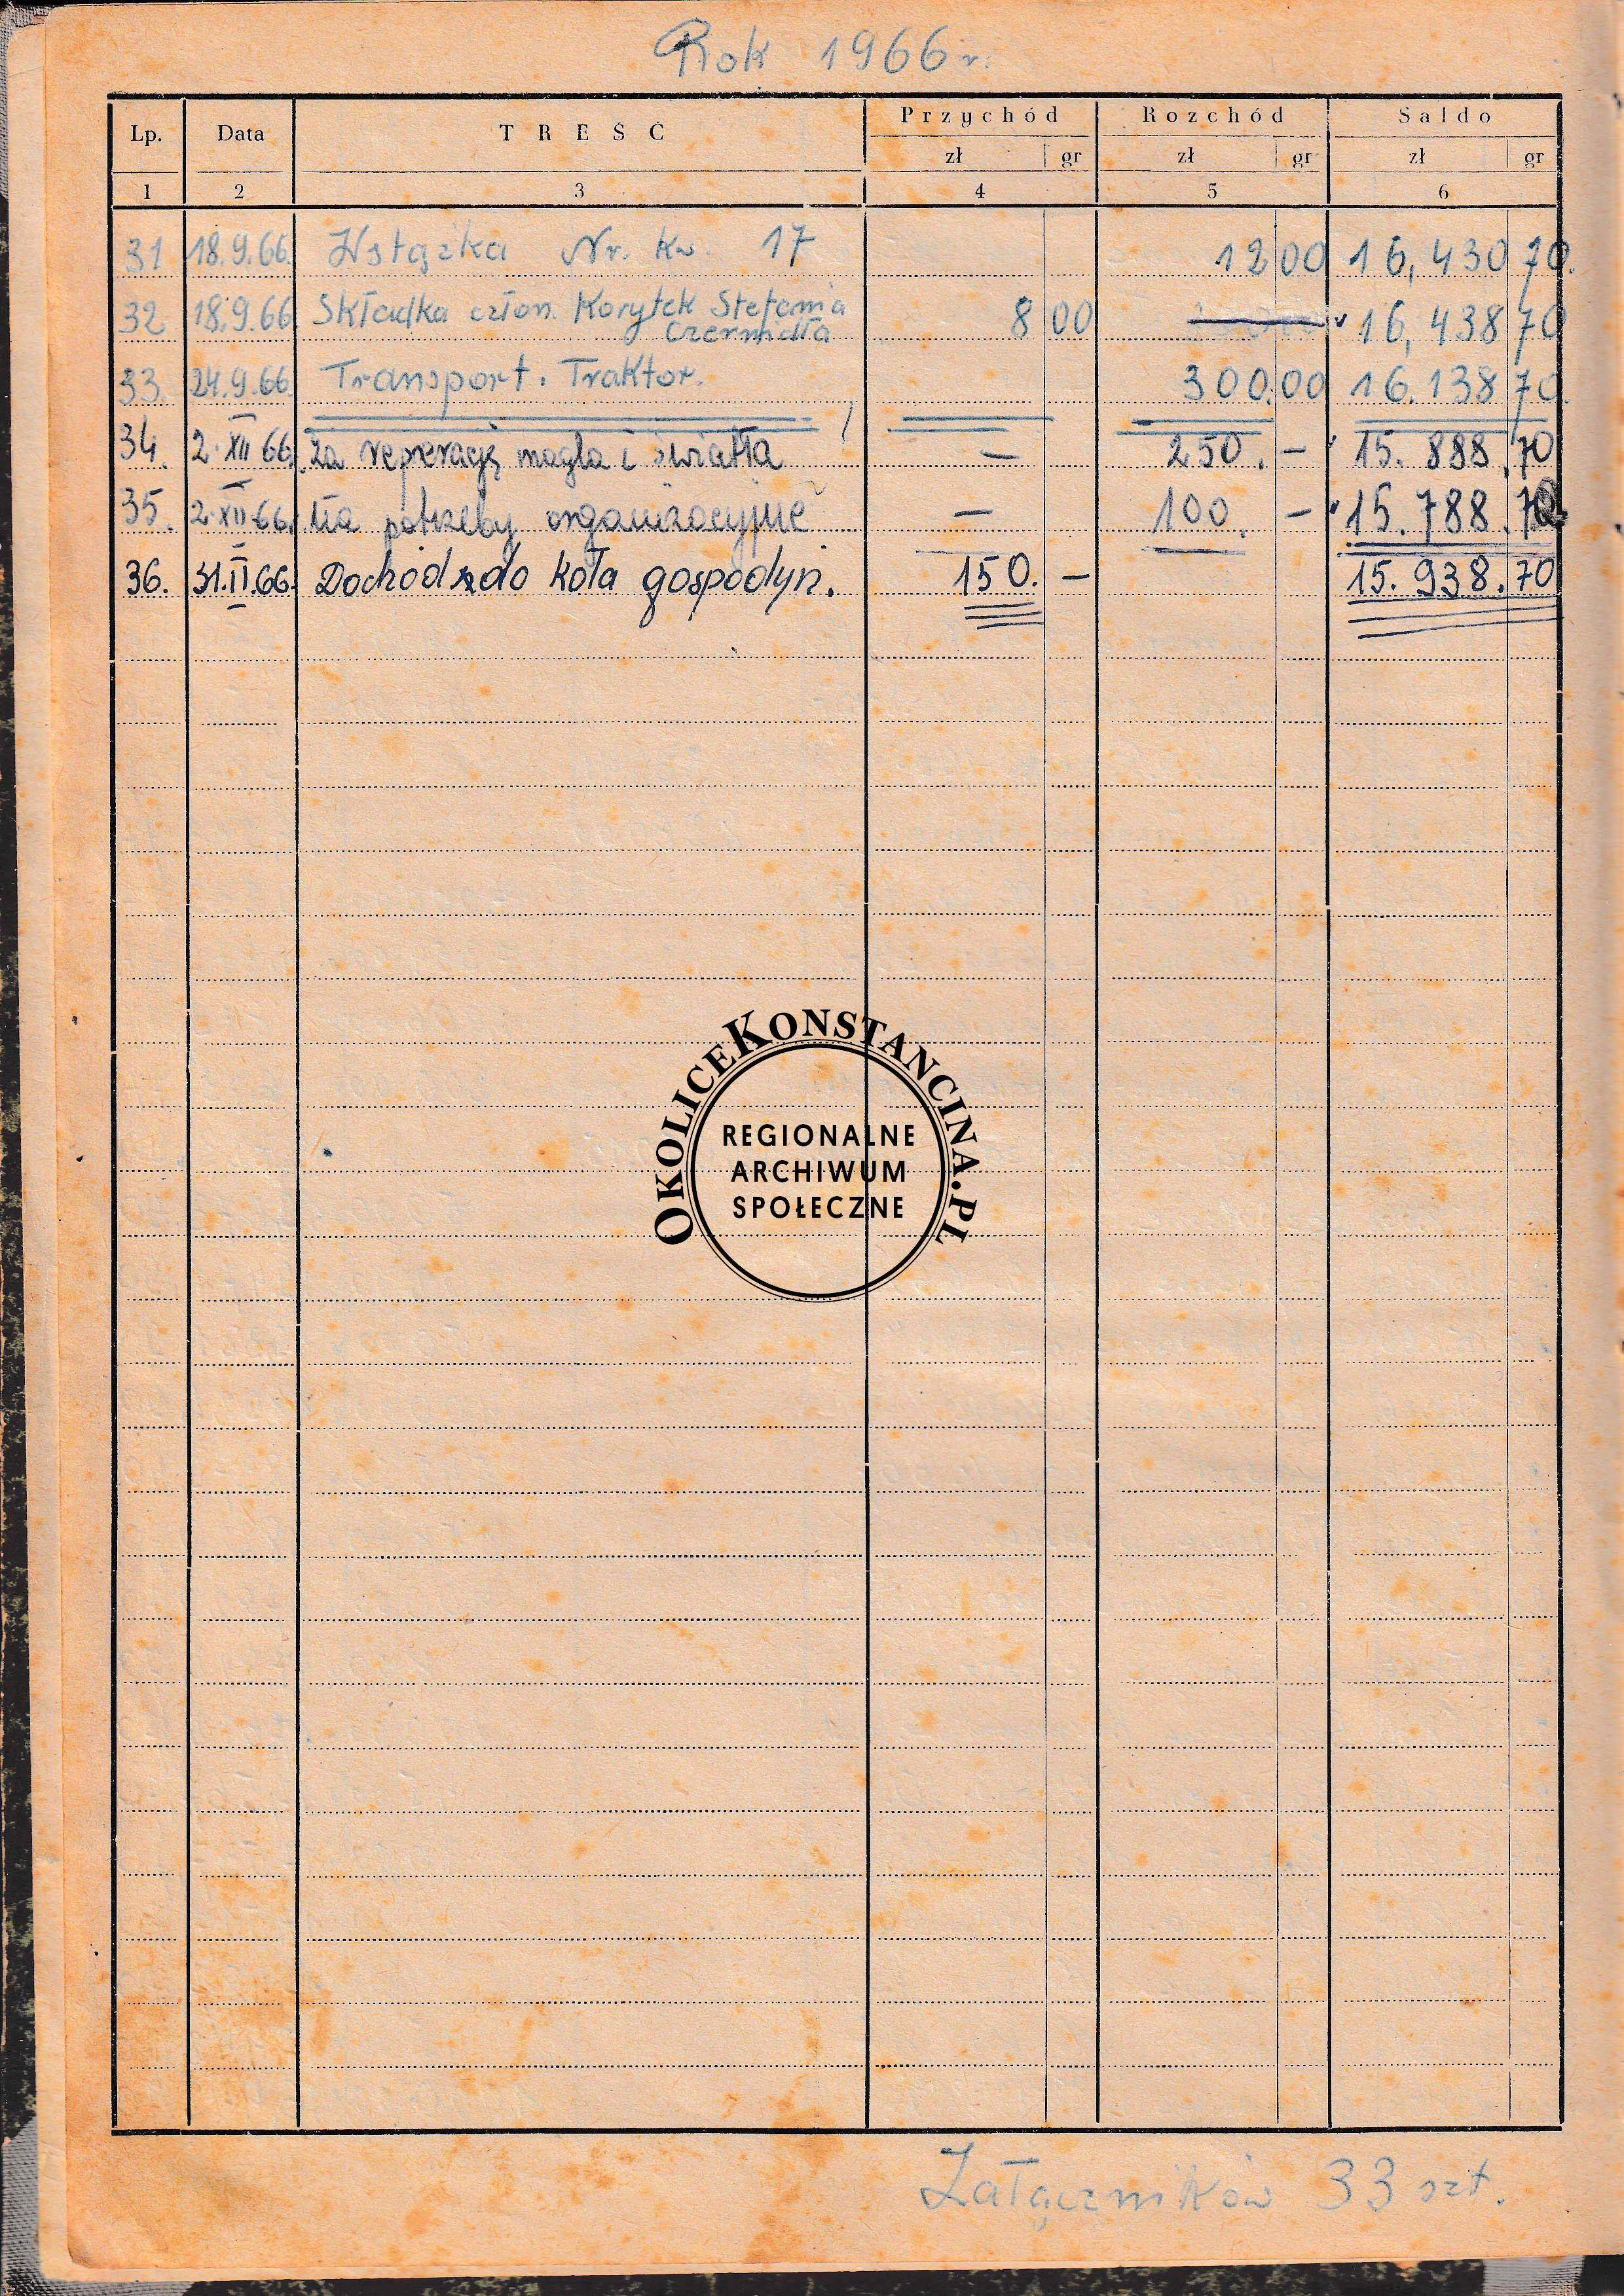 Rok 1966 r.
Lp. Data TREŚĆ Przychód Rozchód Saldo
zł gr zł gr zł gr
1 2 3 4 5 6
31 18.9.66. Wstążka Nr. kw. 17 12 00 16,430 70.
32 18.9.66 Składka człon. Korytek Stefania 8 00 16,438 70
Czernidła
33. 24.9.66. Transport. Traktor. 300.00 16.138 70.
34. 2.XII 66. za reperację magla i światła — 250. — 15. 888. 70
35. 2.XII.66. na potrzeby organizacyjne — 100. — 15. 788. 70
36. 31.II.66. Dochód do koła gospodyń. 150. — 15. 938. 70
OKOLICEKONSTANCINA.PL
REGIONALNE
ARCHIWUM
SPOŁECZNE
Załączników 33 szt.